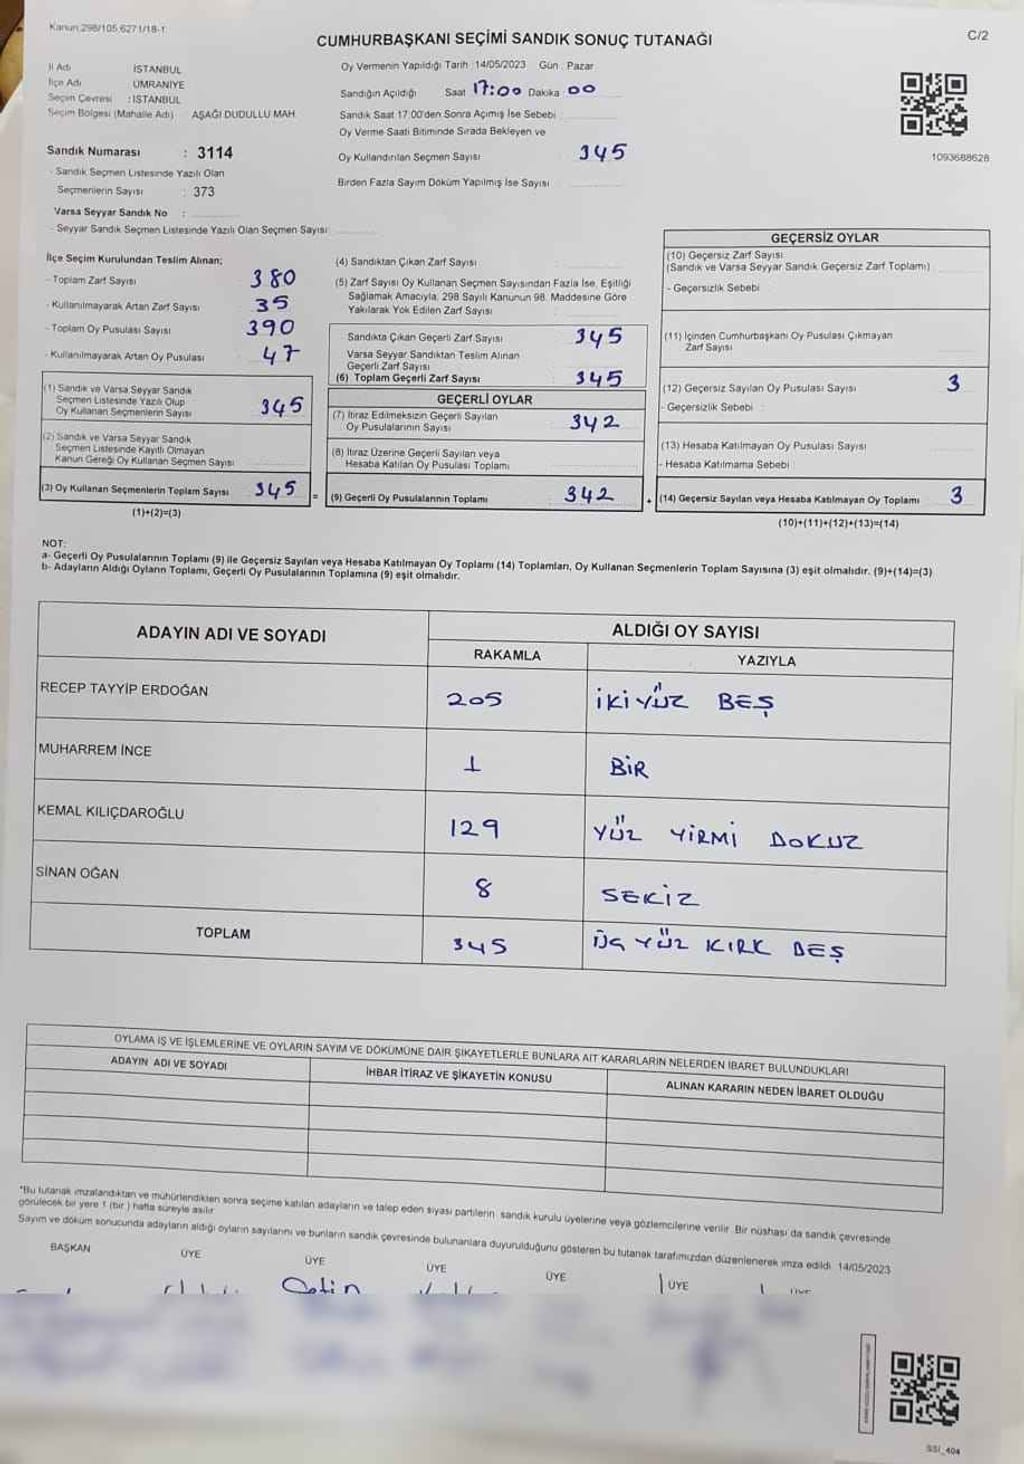 Kanun 298/105,6271/18-1
C/2
CUMHURBAŞKANI SEÇİMİ SANDIK SONUÇ TUTANAĞI
İl Adı : İSTANBUL
İlçe Adı : ÜMRANİYE
Seçim Çevresi : İSTANBUL
Seçim Bölgesi (Mahalle Adı) : AŞAĞI DUDULLU MAH
Sandık Numarası : 3114
- Sandık Seçmen Listesinde Yazılı Olan
Seçmenlerin Sayısı : 373
Varsa Seyyar Sandık No :
- Seyyar Sandık Seçmen Listesinde Yazılı Olan Seçmen Sayısı
Oy Vermenin Yapıldığı Tarih : 14/05/2023 Gün : Pazar
Sandığın Açıldığı Saat 17:00 Dakika 00
Sandık Saat 17.00'den Sonra Açımış İse Sebebi :
Oy Verme Saati Bitiminde Sırada Bekleyen ve
Oy Kullandırılan Seçmen Sayısı 345
Birden Fazla Sayım Döküm Yapılmış İse Sayısı
1093688628
İlçe Seçim Kurulundan Teslim Alınan;
- Toplam Zarf Sayısı 380
- Kullanılmayarak Artan Zarf Sayısı 35
- Toplam Oy Pusulası Sayısı 390
- Kullanılmayarak Artan Oy Pusulası 47
(1) Sandık ve Varsa Seyyar Sandık
Seçmen Listesinde Yazılı Olup
Oy Kullanan Seçmenlerin Sayısı 345
(2) Sandık ve Varsa Seyyar Sandık
Seçmen Listesinde Kayıtlı Olmayan
Kanun Gereği Oy Kullanan Seçmen Sayısı
(3) Oy Kullanan Seçmenlerin Toplam Sayısı 345
(1)+(2)=(3)
(4) Sandıktan Çıkan Zarf Sayısı
(5) Zarf Sayısı Oy Kullanan Seçmen Sayısından Fazla İse, Eşitliği
Sağlamak Amacıyla, 298 Sayılı Kanunun 98. Maddesine Göre
Yakılarak Yok Edilen Zarf Sayısı
Sandıkta Çıkan Geçerli Zarf Sayısı 345
Varsa Seyyar Sandıktan Teslim Alınan
Geçerli Zarf Sayısı
(6) Toplam Geçerli Zarf Sayısı 345
GEÇERLİ OYLAR
(7) İtiraz Edilmeksizin Geçerli Sayılan
Oy Pusulalarının Sayısı 342
(8) İtiraz Üzerine Geçerli Sayılan veya
Hesaba Katılan Oy Pusulası Toplamı
= (9) Geçerli Oy Pusulalarının Toplamı 342
GEÇERSİZ OYLAR
(10) Geçersiz Zarf Sayısı
(Sandık ve Varsa Seyyar Sandık Geçersiz Zarf Toplamı)
- Geçersizlik Sebebi
(11) İçinden Cumhurbaşkanı Oy Pusulası Çıkmayan
Zarf Sayısı
(12) Geçersiz Sayılan Oy Pusulası Sayısı 3
- Geçersizlik Sebebi :
(13) Hesaba Katılmayan Oy Pusulası Sayısı
- Hesaba Katılmama Sebebi
+ (14) Geçersiz Sayılan veya Hesaba Katılmayan Oy Toplamı 3
(10)+(11)+(12)+(13)=(14)
NOT:
a- Geçerli Oy Pusulalarının Toplamı (9) ile Geçersiz Sayılan veya Hesaba Katılmayan Oy Toplamı (14) Toplamları, Oy Kullanan Seçmenlerin Toplam Sayısına (3) eşit olmalıdır. (9)+(14)=(3)
b- Adayların Aldığı Oyların Toplamı, Geçerli Oy Pusulalarının Toplamına (9) eşit olmalıdır.
ADAYIN ADI VE SOYADI ALDIĞI OY SAYISI
RAKAMLA YAZIYLA
RECEP TAYYİP ERDOĞAN 205 İKİYÜZ BEŞ
MUHARREM İNCE 1 BİR
KEMAL KILIÇDAROĞLU 129 YÜZ YİRMİ DOKUZ
SİNAN OĞAN 8 SEKİZ
TOPLAM 345 ÜÇ YÜZ KIRK BEŞ
OYLAMA İŞ VE İŞLEMLERİNE VE OYLARIN SAYIM VE DÖKÜMÜNE DAİR ŞİKAYETLERLE BUNLARA AİT KARARLARIN NELERDEN İBARET BULUNDUKLARI
ADAYIN ADI VE SOYADI İHBAR İTİRAZ VE ŞİKAYETİN KONUSU ALINAN KARARIN NEDEN İBARET OLDUĞU
*Bu tutanak imzalandıktan ve mühürlendikten sonra seçime katılan adayların ve talep eden siyasi partilerin sandık kurulu üyelerine veya gözlemcilerine verilir. Bir nüshası da sandık çevresinde
görülecek bir yere 1 (bir) hafta süreyle asılır
Sayım ve döküm sonucunda adayların aldığı oyların sayılarını ve bunların sandık çevresinde bulunanlara duyurulduğunu gösteren bu tutanak tarafımızdan düzenlenerek imza edildi. 14/05/2023
BAŞKAN ÜYE ÜYE ÜYE ÜYE ÜYE ÜYE
Çetin
SSI_404